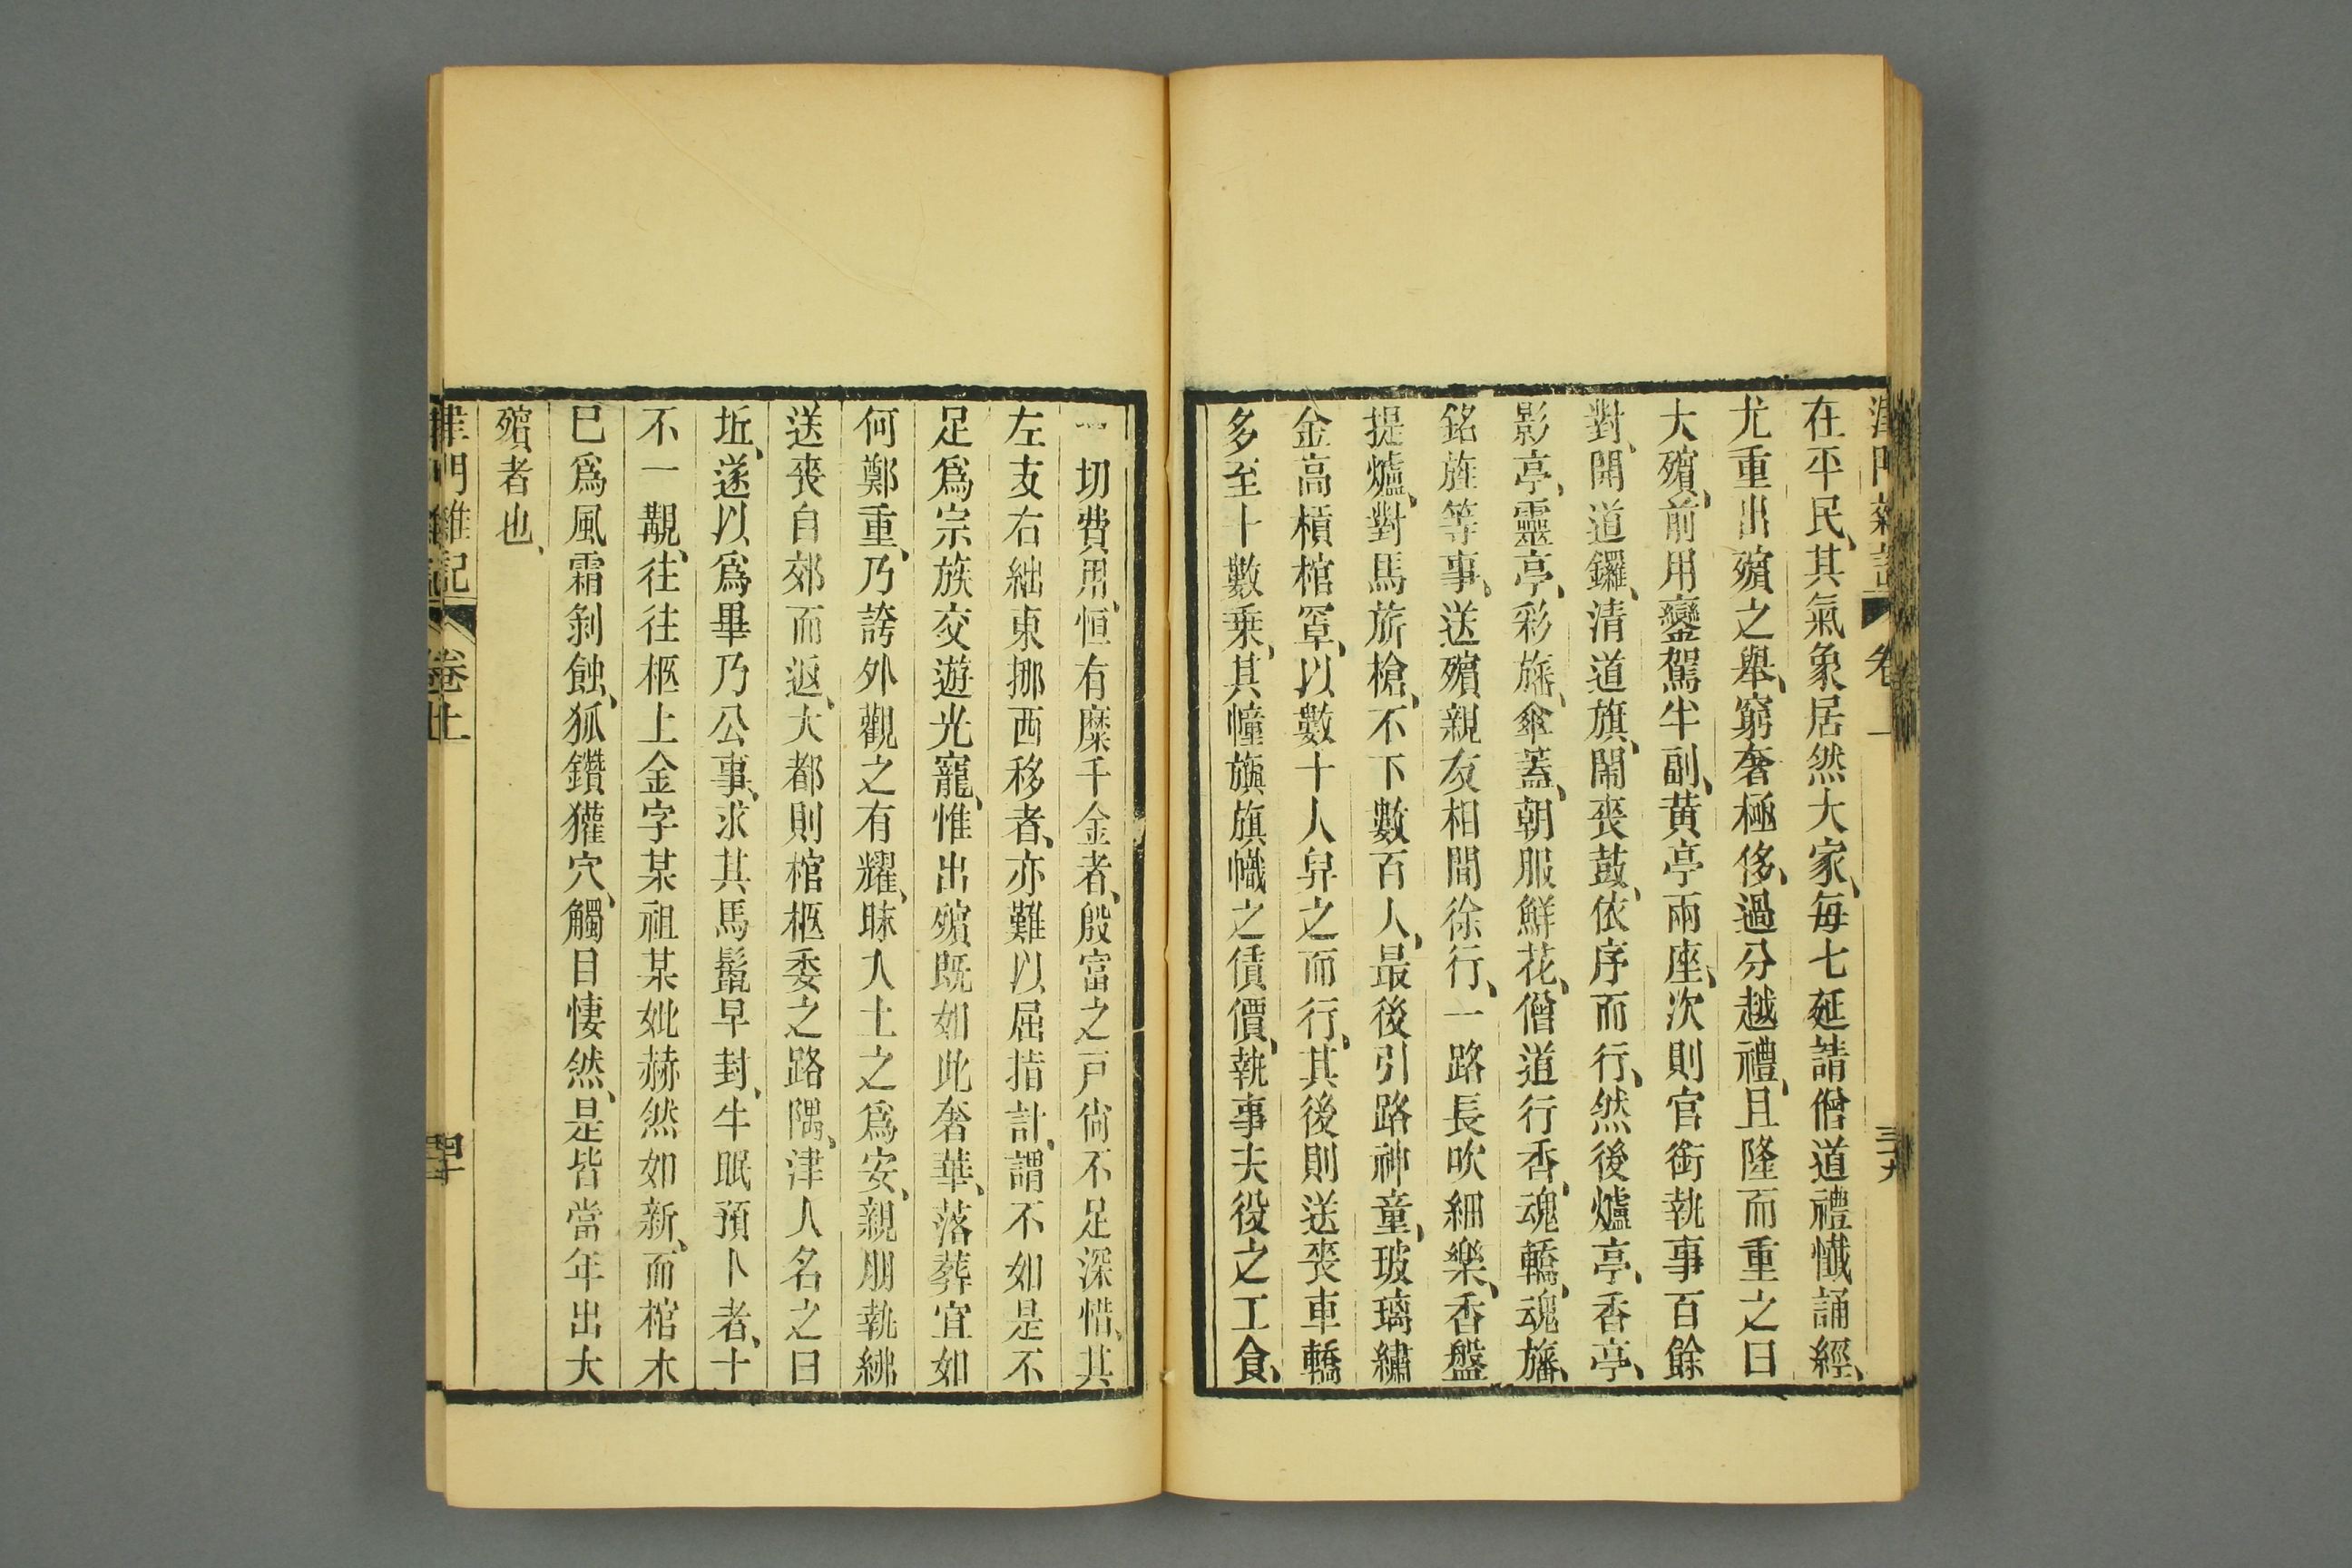 在平民、其氣象居然大家、每七延請僧道禮懺誦經、
尤重出殯之舉、窮奢極侈、過分越禮、且隆而重之曰
大殯、前用鑾駕半副、黃亭兩座、次則官銜執事百餘
對、開道鑼、清道旗、鬧喪鼓、依序而行、然後爐亭、香亭、
影亭、靈亭、彩旛、傘蓋、朝服鮮花、僧道行香、魂轎、魂旛、
銘旌等事、送殯親友相間徐行、一路長吹細樂、香盤
提爐、對馬旂槍、不下數百人、最後引路神童、玻璃繡
金高槓棺罩、以數十人舁之而行、其後則送喪車轎
多至十數乘、其幢旛旗幟之債價、執事夫役之工食、
一切費用、恒有糜千金者、殷富之戶尙不足深惜、其
左支右絀東挪西移者、亦難以屈指計、謂不如是不
足爲宗族交遊光寵、惟出殯既如此奢華、落葬宜如
何鄭重、乃誇外觀之有耀、昧入土之爲安、親朋執紼
送喪自郊而返、大都則棺柩委之路隅、津人名之曰
坵、遂以爲畢乃公事、求其馬鬣早封、牛眠預卜者、十
不一覯、往往柩上金字某祖某妣赫然如新、而棺木
巳爲風霜剝蝕、狐鑽獾穴、觸目悽然、是皆當年出大
殯者也、
津門雜記 卷上 四十